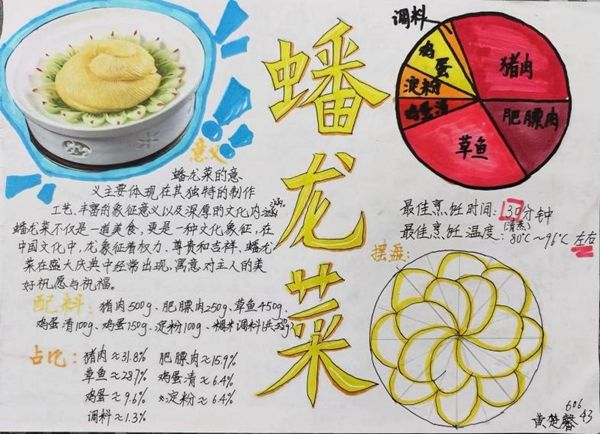 蟠龙菜
意义
蟠龙菜的意
义主要体现在其独特的制作
工艺、丰富的象征意义以及深厚的文化内涵。
蟠龙菜不仅是一道美食,更是一种文化象征,在
中国文化中,龙象征着权力、尊贵和吉祥,蟠龙
菜在盛大庆典中经常出现,寓意对主人的美
好祝愿与祝福。
配料:猪肉500g、肥膘肉250g、草鱼450g、
鸡蛋清100g、鸡蛋150g、淀粉100g、
占比:猪肉≈31.8% 肥膘肉≈15.9%
草鱼≈28.7% 鸡蛋清≈6.4%
鸡蛋≈9.6% 淀粉≈6.4%
调料≈1.3%
调料
鸡蛋
淀粉
鸡蛋清
猪肉
肥膘肉
草鱼
最佳烹饪时间:30分钟
(清蒸)
最佳烹饪温度:80℃~96℃左右
摆盘:
606
黄楚馨 43